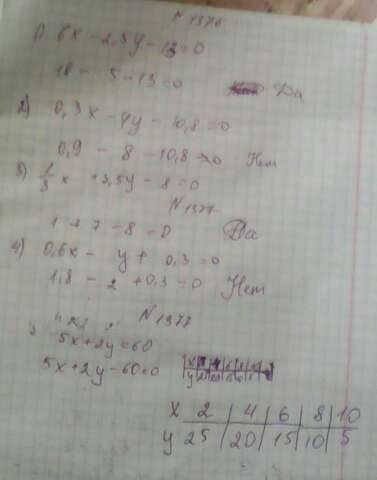 N 1376
1) 6x - 2,5y - 13 = 0
18 - 5 - 13 = 0 Да
2) 0,3x - 4y - 10,8 = 0
0,9 - 8 - 10,8 = 0 Нет
3) 1/3 x + 3,5y - 8 = 0
N 1377
1 + 7 - 8 = 0 Да
4) 0,6x - y + 0,3 = 0
1,8 - 2 + 0,3 = 0 Нет
N 1377
5x + 2y = 60
5x + 2y - 60 = 0
x 2 | 4 | 6 | 8 | 10
y 25 | 20 | 15 | 10 | 5